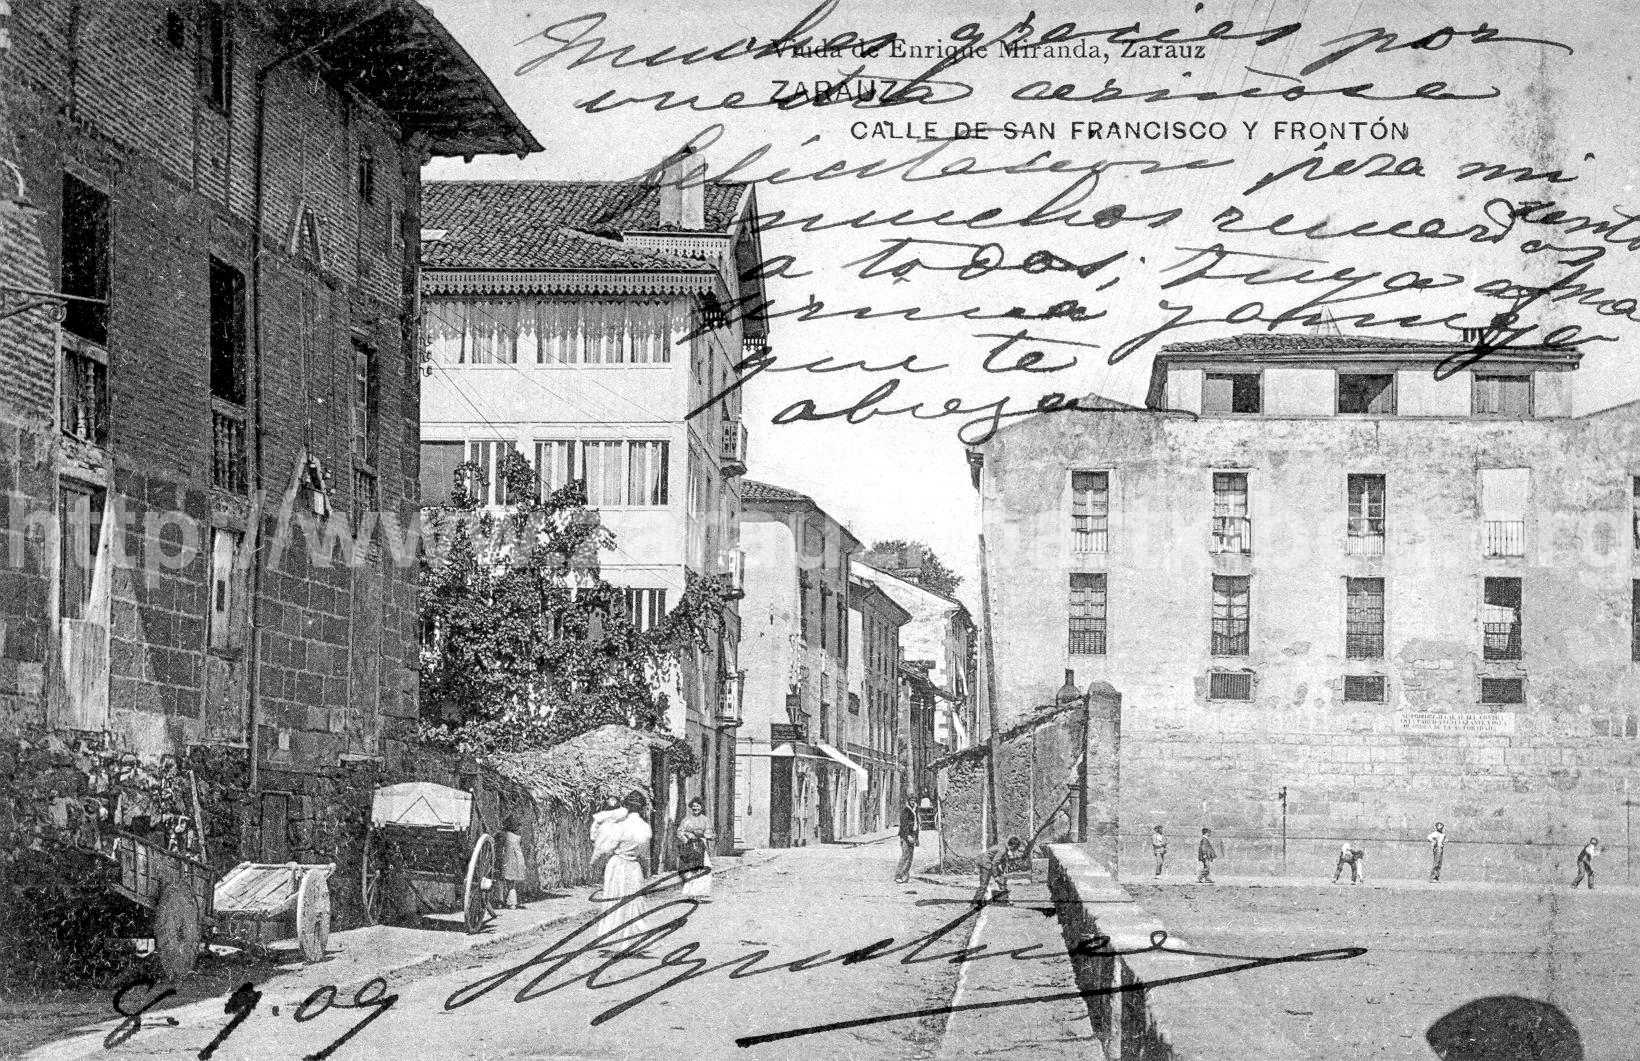 Viuda de Enrique Miranda, Zarauz
ZARAUZ
CALLE DE SAN FRANCISCO Y FRONTÓN
Muchas gracias por
vuestra cariñosa
felicitacion para mi
santo
muchos recuerdos
a todos; tuya afma
prima y amiga
que te
abraza
8.9.09
http://www.